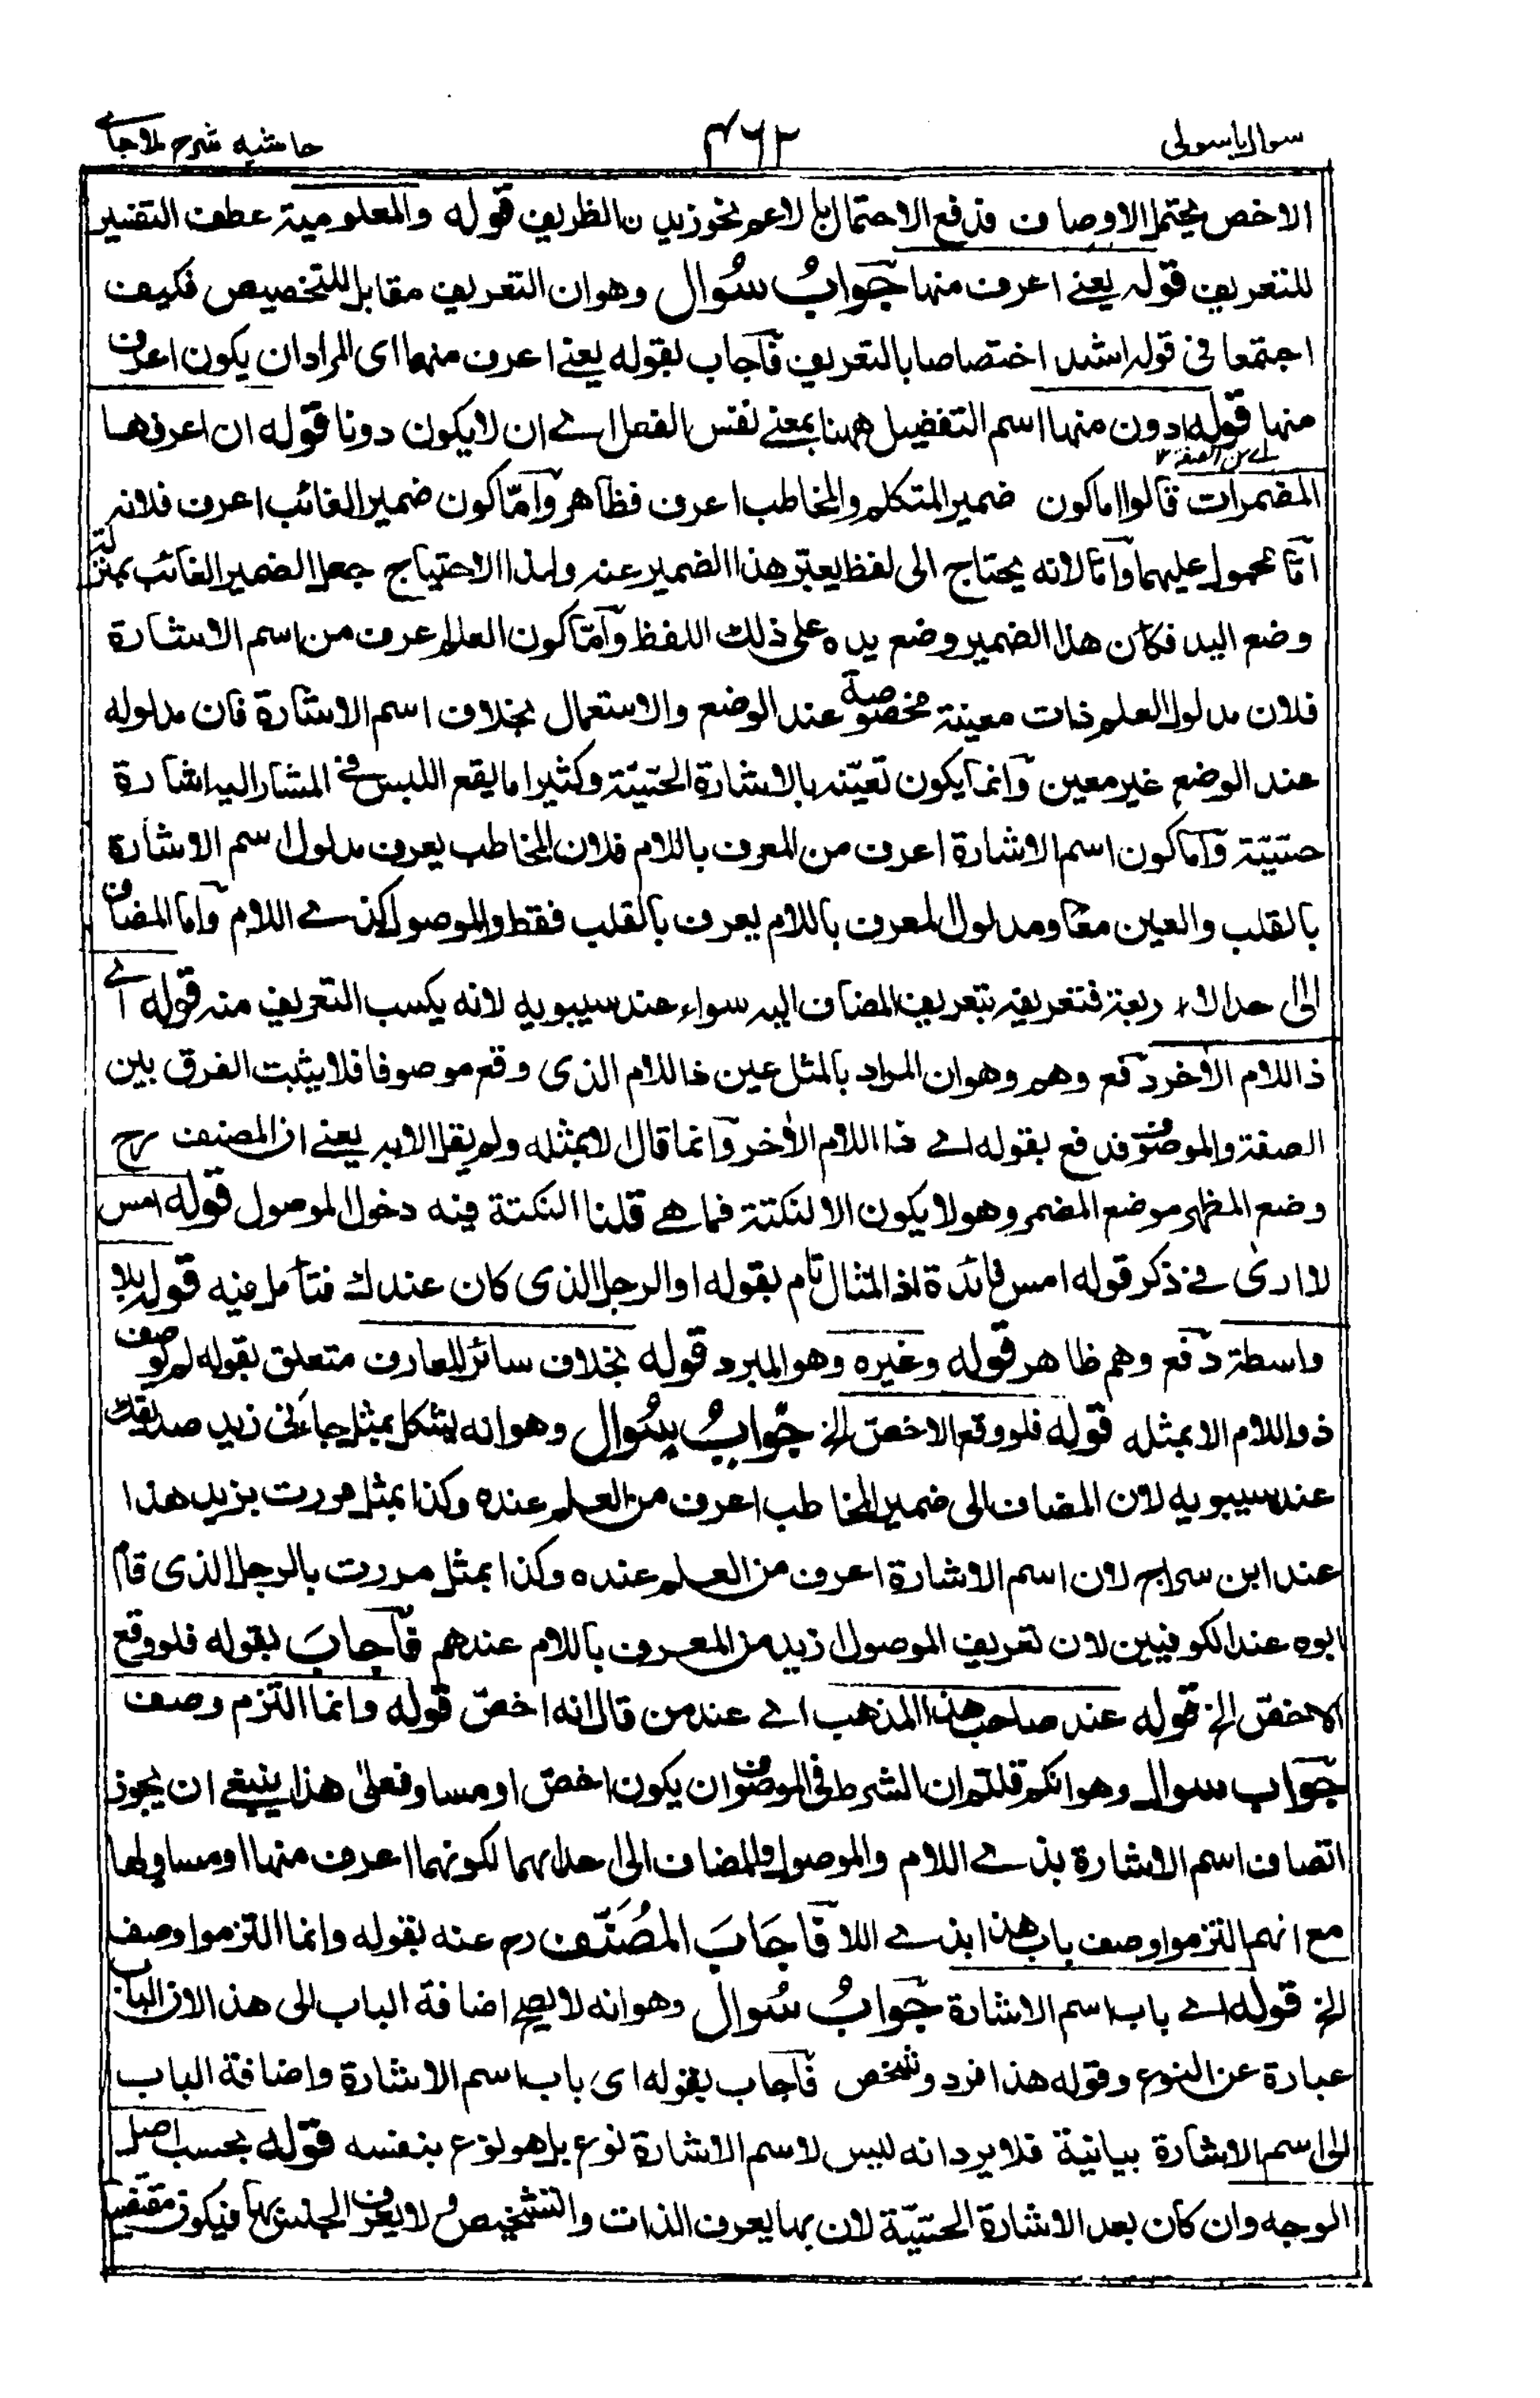 سوال باسولی ۴۶۲ حاشیه شرح ملاجامے
الاخص یحتمل الاوصاف فدفع الاحتمال بالاعم نحو زیدن الظریف قوله والمعلومیة عطف التفسیر
للتعریف قوله یعنے اعرف منها جوابُ سُوال وهوان التعریف مقابل للتخصیص فکیف
اجتمعا فی قوله اشد اختصاصا بالتعریف فآجاب بقوله یعنے اعرف منها ای المراد ان یکون اعرف
منها قوله ادون منها اسم التفضیل ههنا بمعنے نفس الفعل اے ان لایکون دونا قوله ان اعرفها
اے من الصفة ۱۲
المضمرات قالوا اما کون ضمیر المتکلم والمخاطب اعرف فظاهر وآمّا کون ضمیر الغائب اعرف فلانه
امّا محمول علیهما وآمّا لانه یحتاج الی لفظ یعبّر هذا الضمیر عنه ولهذا الاحتیاج جعل الضمیر الغائب بمنزلة
وضع الید فکأن هذا الضمیر وضع یده علی ذلك اللفظ وآمّا کون العلم اعرف من اسم الاشارة
فلان مدلول العلم ذات معینة مخصوصة عند الوضع والاستعمال بخلاف اسم الاشارة فان مدلوله
عند الوضع غیر معین وآنما یکون تعیّنه بالاشارة الحسّیّة وکثیرا ما یقع اللبس فے المشار الیه اشارة
حسّیّة وآما کون اسم الاشارة اعرف من المعرف باللام فلان المخاطب یعرف مدلول اسم الاشارة
بالقلب والعین معًا ومدلول المعرف باللام یعرف بالقلب فقط والموصول کذے اللام وآما المضاف
الی احد الاربعة فتعریفه بتعریف المضاف الیه سواء عند سیبویه لانه یکسب التعریف منه قوله اے
ذا اللام الاٰخر دفع وهم وهوان المراد بالمثل عین ذا اللام الذی وقع موصوفا فلا یثبت الفرق بین
الصفة والموصوف فدفع بقوله اے ذا اللام الاٰخر وآنما قال الا بمثله ولم یقل الا به یعنے ان المصنف رح
وضع المظهر موضع المضمر وهو لا یکون الا لنکتة فما هے قلنا النکتة فیه دخول الموصول قوله امس
لا ادری فے ذکر قوله امس فائدة اذ المثال تام بقوله او الرجل الذی کان عندك فتأمل فیه قوله بلا
واسطة دفع وهم ظاهر قوله وغیره وهو المبرد قوله بخلاف سائر المعارف متعلق بقوله لم یوصف
ذو اللام الا بمثله قوله فلو وقع الاخص الخ جوابُ سُوال وهوانه یشکل بمثل جاءنی زید صدیقك
عند سیبویه لان المضاف الی ضمیر المخاطب اعرف من العلم عنده وکذا بمثل مررت بزید هذا
عند ابن سراج لان اسم الاشارة اعرف من العلم عنده وکذا بمثل مررت بالرجل الذی قام
ابوه عند الکوفیین لان تعریف الموصول ازید من المعرف باللام عندهم فآجابَ بقوله فلو وقع
الاخصّ الخ قوله عند صاحب هذا المذهب اے عند من قال انه اخصّ قوله وانما التزم وصف
جواب سوال وهو انکم قلتم ان الشرط فی الموصوف ان یکون اخصّ او مساو فعلیٰ هذا ینبغے ان یجوز
اتصاف اسم الاشارة بذے اللام والموصول والمضاف الی احدهما لکونهما اعرف منها او مساو لها
مع انهم التزموا وصف باب هذا بذے اللا فآجَابَ المُصَنّف رح عنه بقوله وانما التزموا وصف
الخ قوله اے باب اسم الاشارة جوابُ سُوال وهو انه لا یصح اضافة الباب الی هذا لان الباب
عبارة عن النوع وقوله هذا فرد وشخص فآجاب بقوله ای باب اسم الاشارة واضافة الباب
الی اسم الاشارة بیانیة فلا یرد انه لیس لاسم الاشارة نوع بل هو نوع بنفسه قوله بحسب اصل
الوجه وان کان بعد الاشارة الحسّیّة لان بها یعرف الذات والتشخیص ولا یعرف الجنس بها فیکون مقتضے